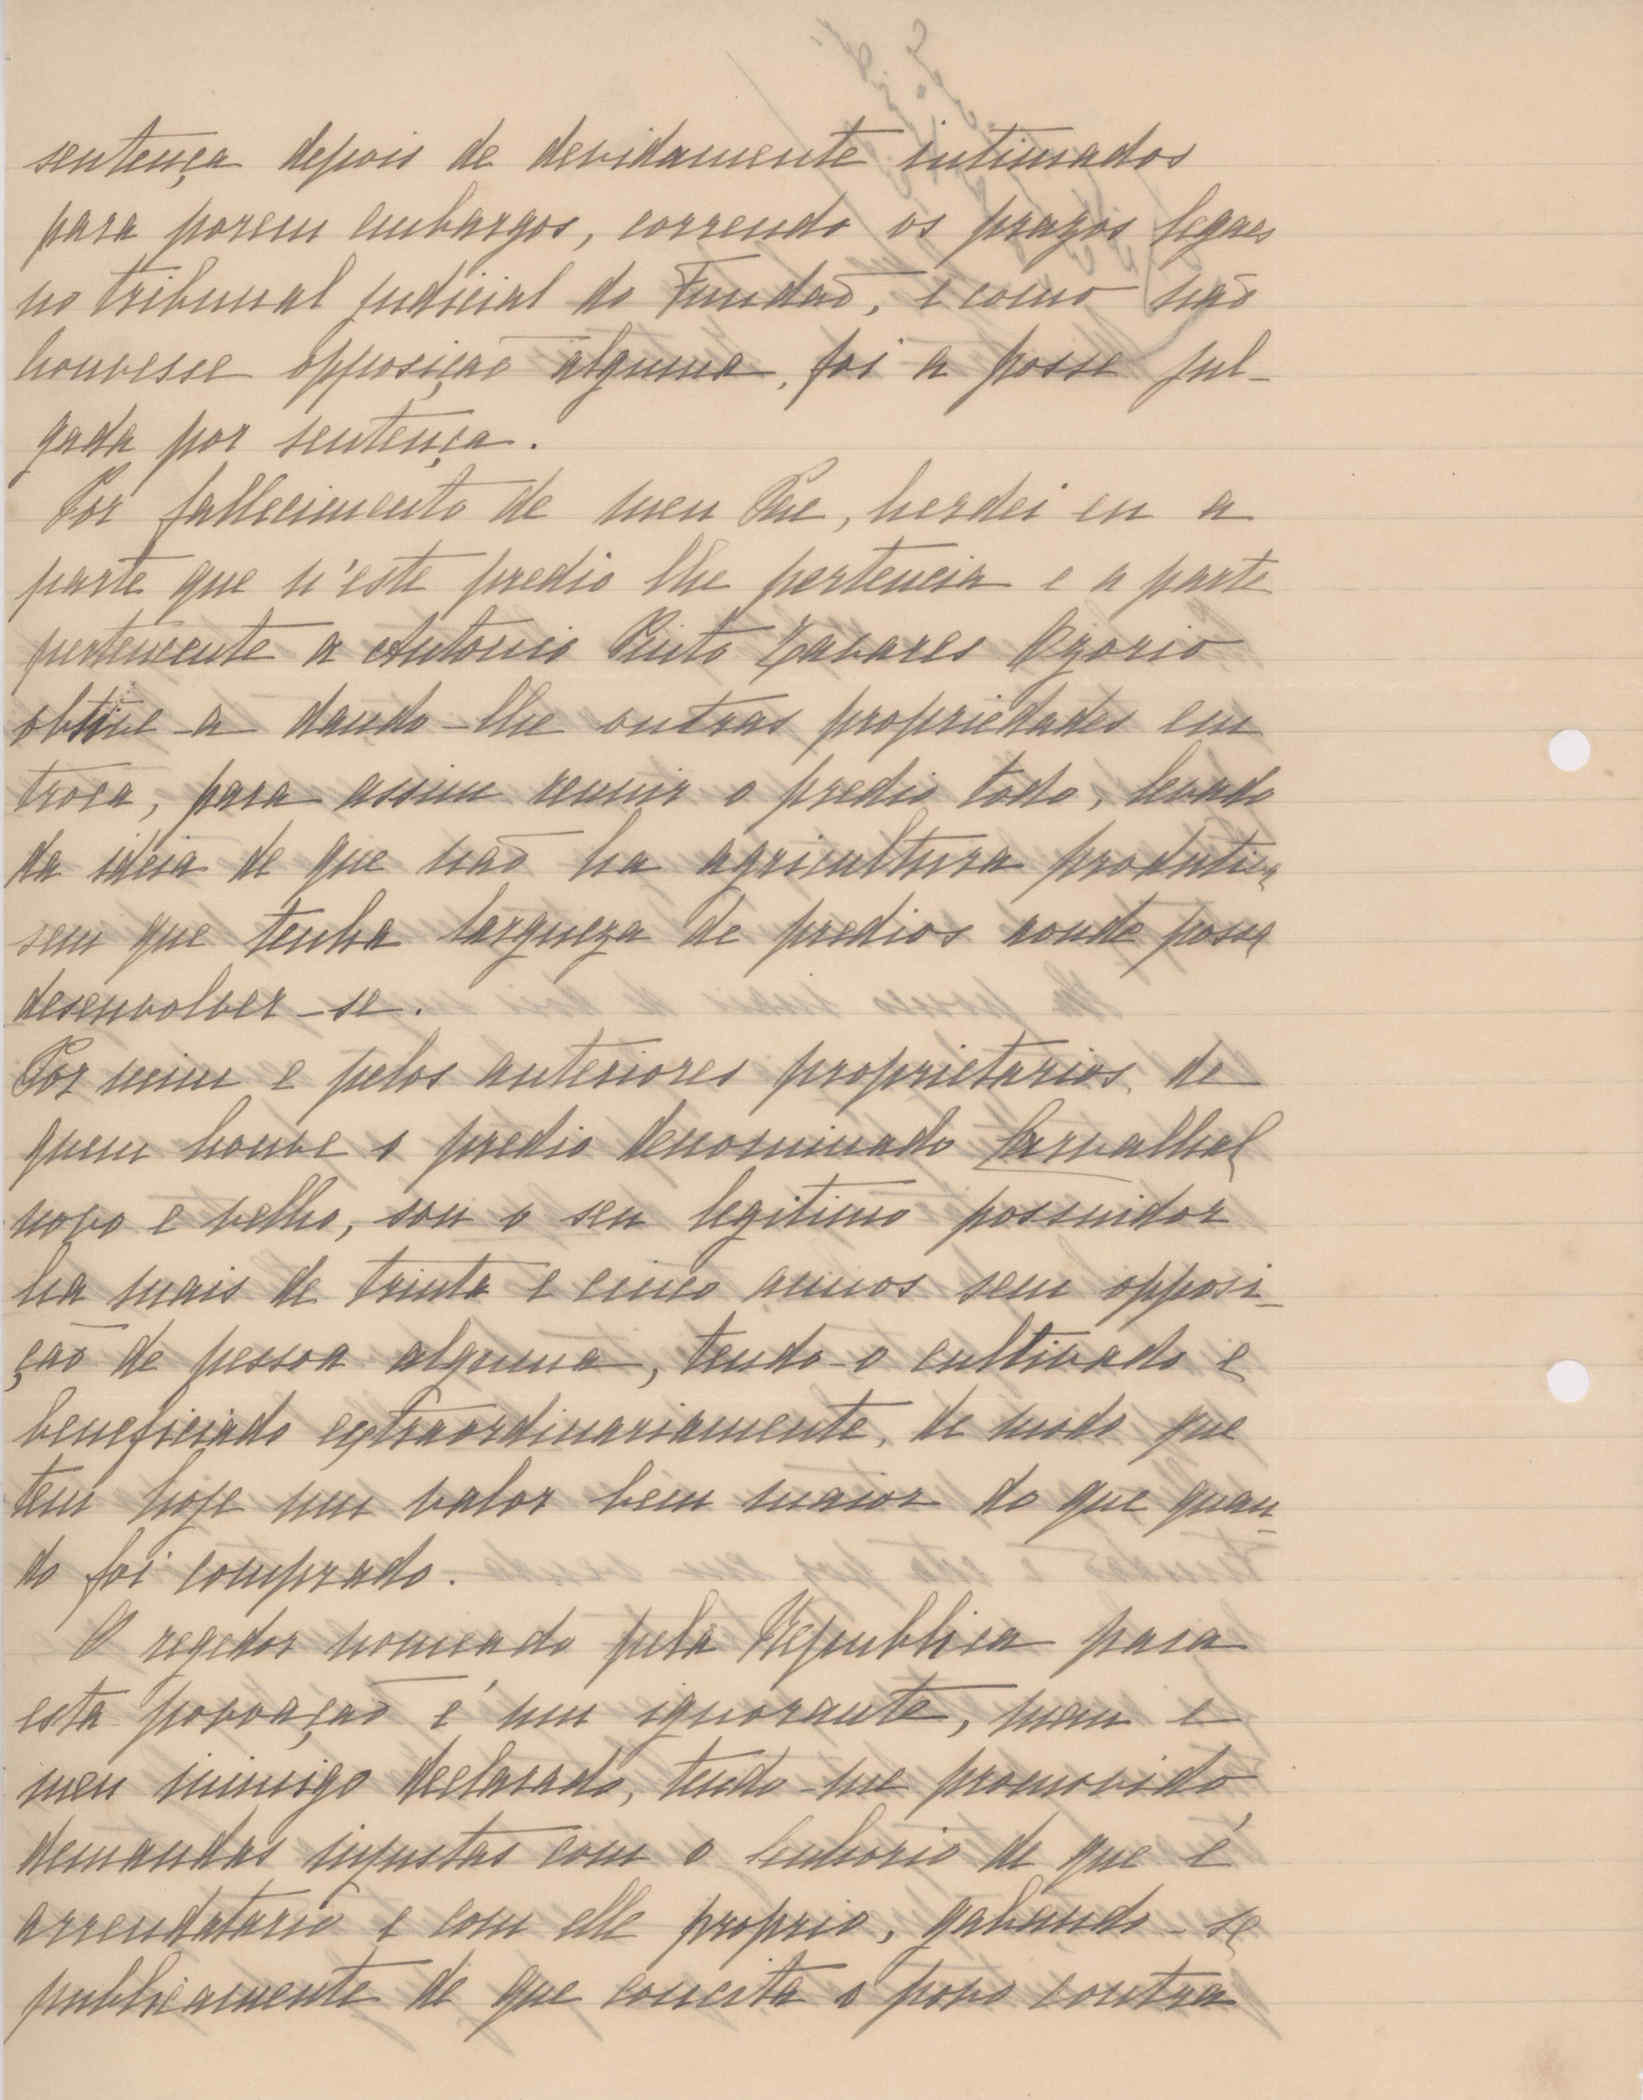 sentença depois de devidamente intimados
para porem embargos, correndo os prazos legaes
no tribunal judicial do Fundão, e como não
houvesse opposição alguma, foi a posse jul-
gada por sentença.
Por fallecimento de meu Pae, herdei eu a
parte que n'este predio lhe pertencia e a parte
pertencente a Antonio Pinto Tavares Ozorio
obtive-a dando-lhe outras propriedades em
troca, para assim reunir o predio todo, levado
da idéia de que não ha agricultura produtiva
sem que tenha largueza de predios aonde possa
desenvolver-se.
Por mim e pelos anteriores proprietarios, de
quem houve o predio denominado Carvalhal
novo e velho, sou o seu legitimo possuidor
ha mais de trinta e cinco annos sem opposi-
ção de pessoa alguma, tendo-o cultivado e
beneficiado extraordinariamente, de modo que
tem hoje um valor bem maior do que quan-
do foi comprado.
O regedor nomeado pela Republica para
esta povoação é um ignorante, mau e
meu inimigo declarado, tendo-me promovido
demandas injustas com o senhorio de que é
arrendatario e com elle proprio, gabando-se
publicamente de que concita o povo contra